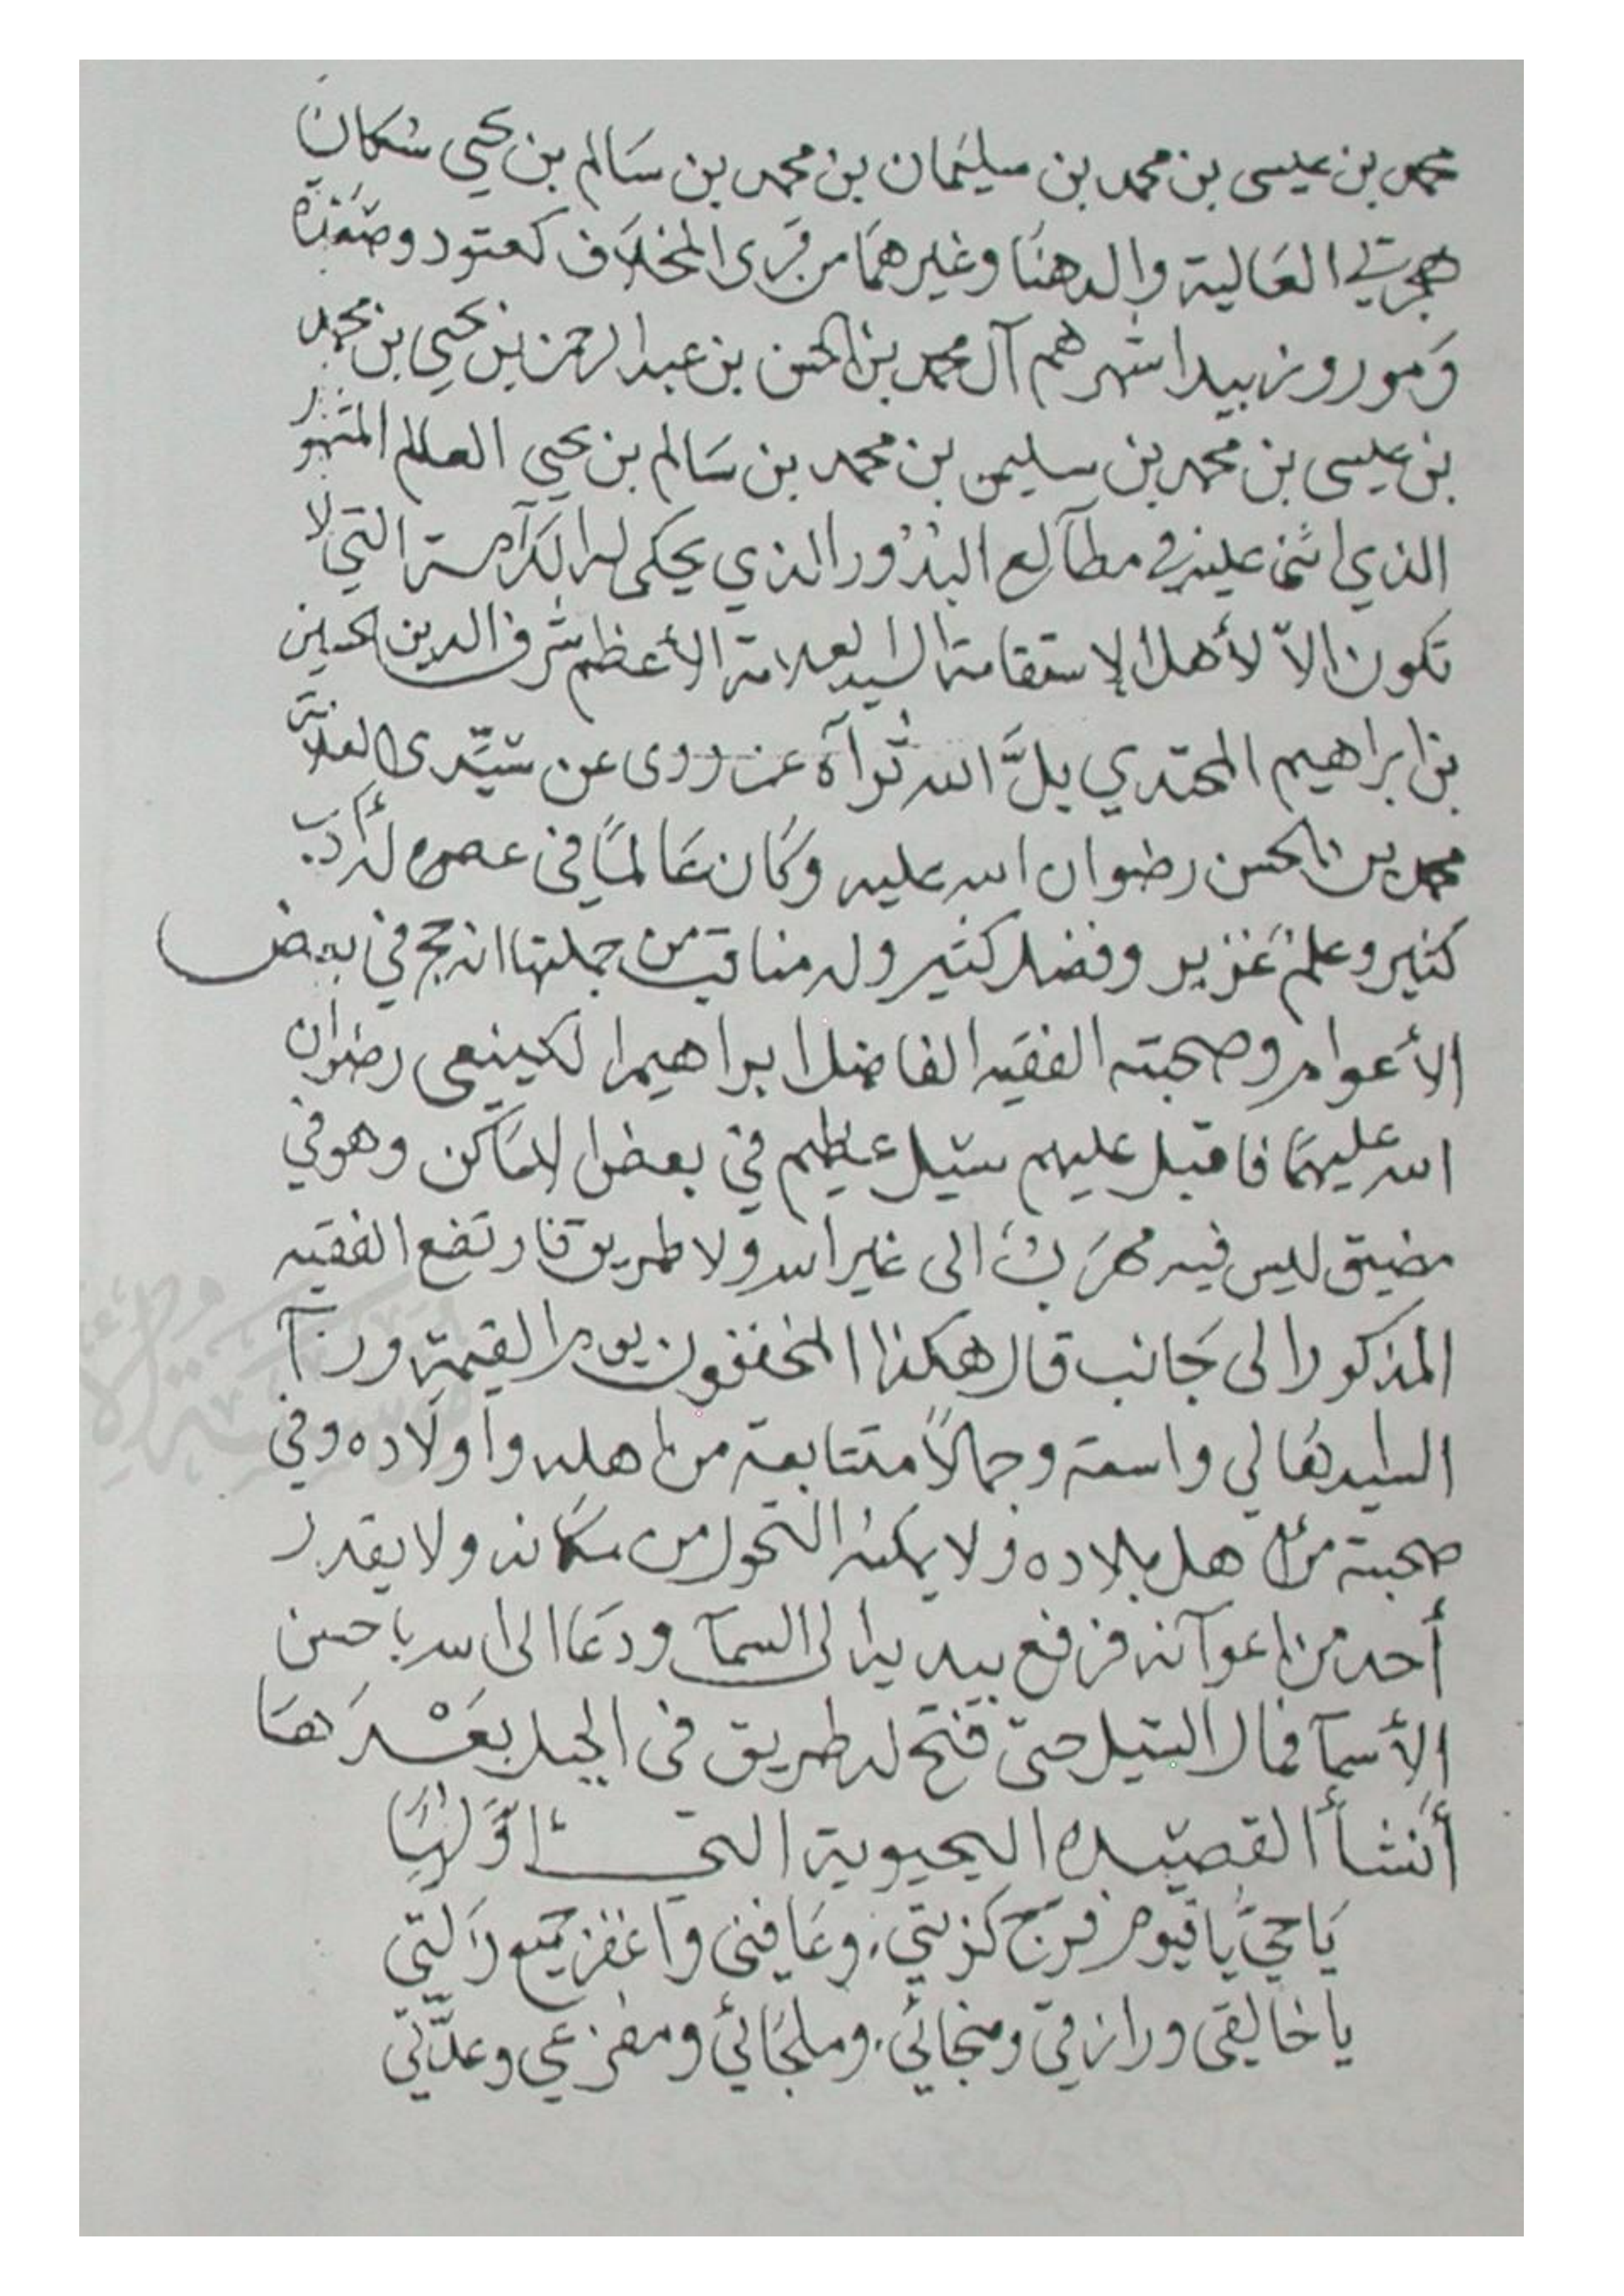 محمد بن عيسى بن محمد بن سليمان بن محمد بن سالم بن يحيى سكان
هجرتي العالية والدهنا وغيرهما من قرى المخلاف كعتود وضمد
ومور وزبيد اشهرهم آل محمد بن الحسن بن عبد الرحمن بن يحيى بن محمد
بن عيسى بن محمد بن سليمن بن محمد بن سالم بن يحيى العالم المشهور
الذي اثنى عليه في مطالع البدور الذي يحكى له الكرامة التي لا
تكون الا لأهل الاستقامة السيد العلامة الأعظم شرف الدين الحسين
بن ابراهيم المحتدي بلَّ الله ثراه عن روى عن سيّدى العلامة
محمد بن الحسن رضوان الله عليه وكان عالماً في عصره له أدب
كثير وعلم غزير وفضل كثير وله مناقب من جملتها انه حج في بعض
الأعوام وصحبته الفقيه الفاضل ابراهيم الكينعي رضوان
الله عليهما فاقبل عليهم سيل عظيم في بعض الاماكن وهو في
مضيق ليس فيه مهرب الى غير الله ولا طريق فارتفع الفقيه
المذكور الى جانب قال هكذا المخففون يوم القيمة ورآ
السيد في واسعة وجمالاً متتابعة من اهله واولاده وفي
صحبته من اهل بلاده ولا يمكنه التحول من مكانه ولا يقدر
أحد من اعوانه فرفع يديه الى السمآ ودعا الى الله باحسن
الأسمآ فمال السيل حتى فتح له طريق في الجبل بعدها
أنشأ القصيده اليحيوية التي اوّلها
يا حيّ يا قيوم فرّج كربتي. وعافني واغفر جميع زلتي
يا خالقي ورازقي ومنجائي. وملجائي ومفزعي وعدّتي